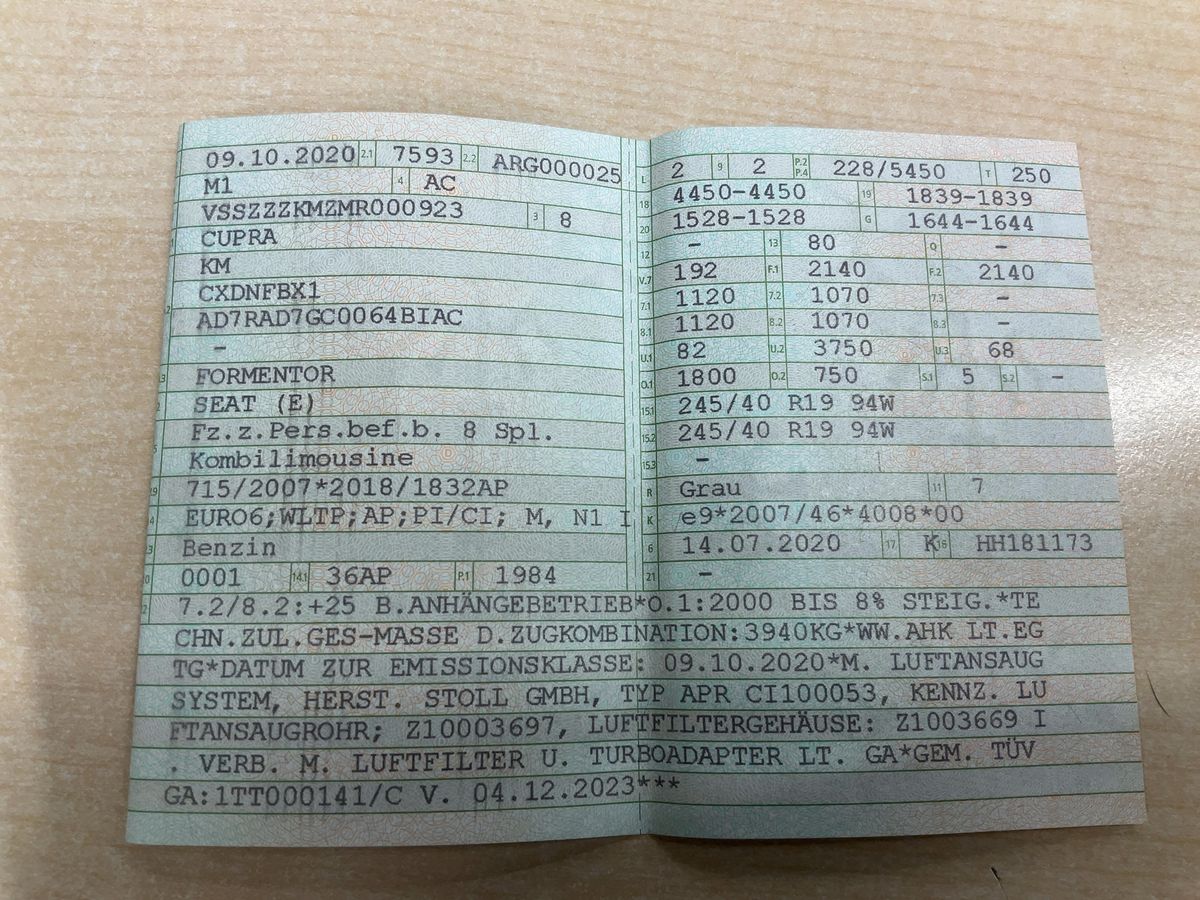 09.10.2020 2.1 7593 2.2 ARG000025
M1 4 AC
VSSZZZKMZMR000923 3 8
CUPRA
KM
CXDNFBX1
AD7RAD7GC0064BIAC
–
FORMENTOR
SEAT (E)
Fz.z.Pers.bef.b. 8 Spl.
Kombilimousine
715/2007*2018/1832AP
EURO6;WLTP;AP;PI/CI; M, N1 I
Benzin
0001 14.1 36AP P.1 1984
L 2 9 2 P.2 P.4 228/5450 T 250
18 4450-4450 19 1839-1839
20 1528-1528 G 1644-1644
12 – 13 80 Q –
V.7 192 F.1 2140 F.2 2140
7.1 1120 7.2 1070 7.3 –
8.1 1120 8.2 1070 8.3 –
U.1 82 U.2 3750 U.3 68
O.1 1800 O.2 750 S.1 5 S.2 –
15.1 245/40 R19 94W
15.2 245/40 R19 94W
15.3 –
R Grau 11 7
K e9*2007/46*4008*00
6 14.07.2020 17 K 16 HH181173
21 –
7.2/8.2:+25 B.ANHÄNGEBETRIEB*O.1:2000 BIS 8% STEIG.*TE
CHN.ZUL.GES-MASSE D.ZUGKOMBINATION:3940KG*WW.AHK LT.EG
TG*DATUM ZUR EMISSIONSKLASSE: 09.10.2020*M. LUFTANSAUG
SYSTEM, HERST. STOLL GMBH, TYP APR CI100053, KENNZ. LU
FTANSAUGROHR; Z10003697, LUFTFILTERGEHÄUSE: Z1003669 I
. VERB. M. LUFTFILTER U. TURBOADAPTER LT. GA*GEM. TÜV
GA:1TT000141/C V. 04.12.2023***